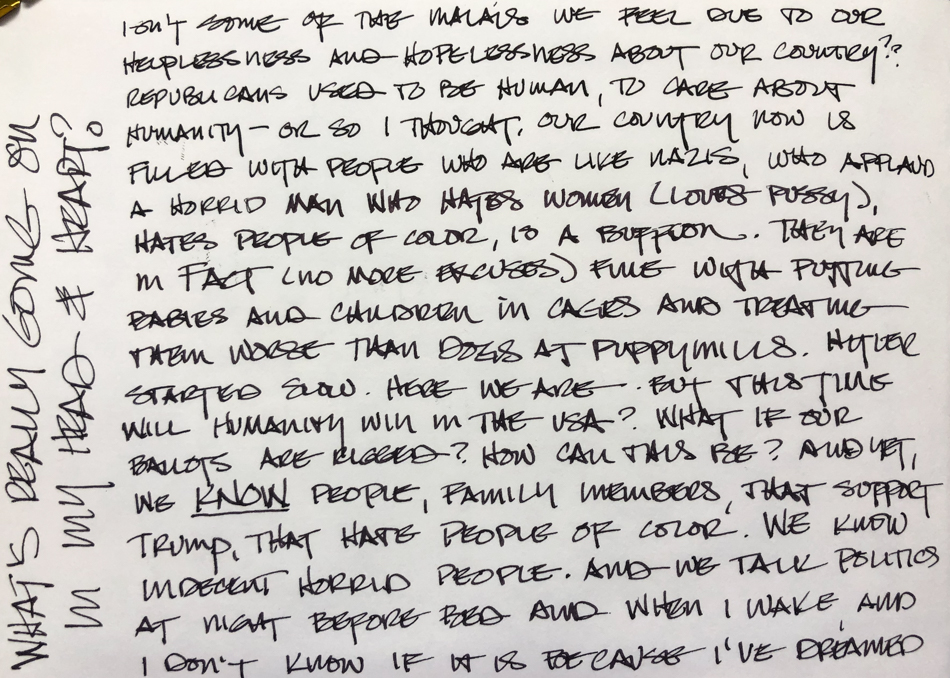 WHAT'S REALLY GOING ON
IN MY HEAD & HEART?
ISN'T SOME OF THE MALAISE WE FEEL DUE TO OUR
HELPLESSNESS AND HOPELESSNESS ABOUT OUR COUNTRY??
REPUBLICANS USED TO BE HUMAN, TO CARE ABOUT
HUMANITY - OR SO I THOUGHT. OUR COUNTRY NOW IS
FILLED WITH PEOPLE WHO ARE LIKE NAZIS, WHO APPLAUD
A HORRID MAN WHO HATES WOMEN (LOVES PUSSY),
HATES PEOPLE OF COLOR, IS A BUFFOON. THEY ARE
IN FACT (NO MORE EXCUSES) FINE WITH PUTTING
BABIES AND CHILDREN IN CAGES AND TREATING
THEM WORSE THAN DOGS AT PUPPYMILLS. HITLER
STARTED SLOW. HERE WE ARE. BUT THIS TIME
WILL HUMANITY WIN IN THE USA? WHAT IF OUR
BALLOTS ARE RIGGED? HOW CAN THIS BE? AND YET,
WE KNOW PEOPLE, FAMILY MEMBERS, THAT SUPPORT
TRUMP, THAT HATE PEOPLE OF COLOR. WE KNOW
INDECENT HORRID PEOPLE. AND WE TALK POLITICS
AT NIGHT BEFORE BED AND WHEN I WAKE AND
I DON'T KNOW IF IT IS BECAUSE I'VE DREAMED